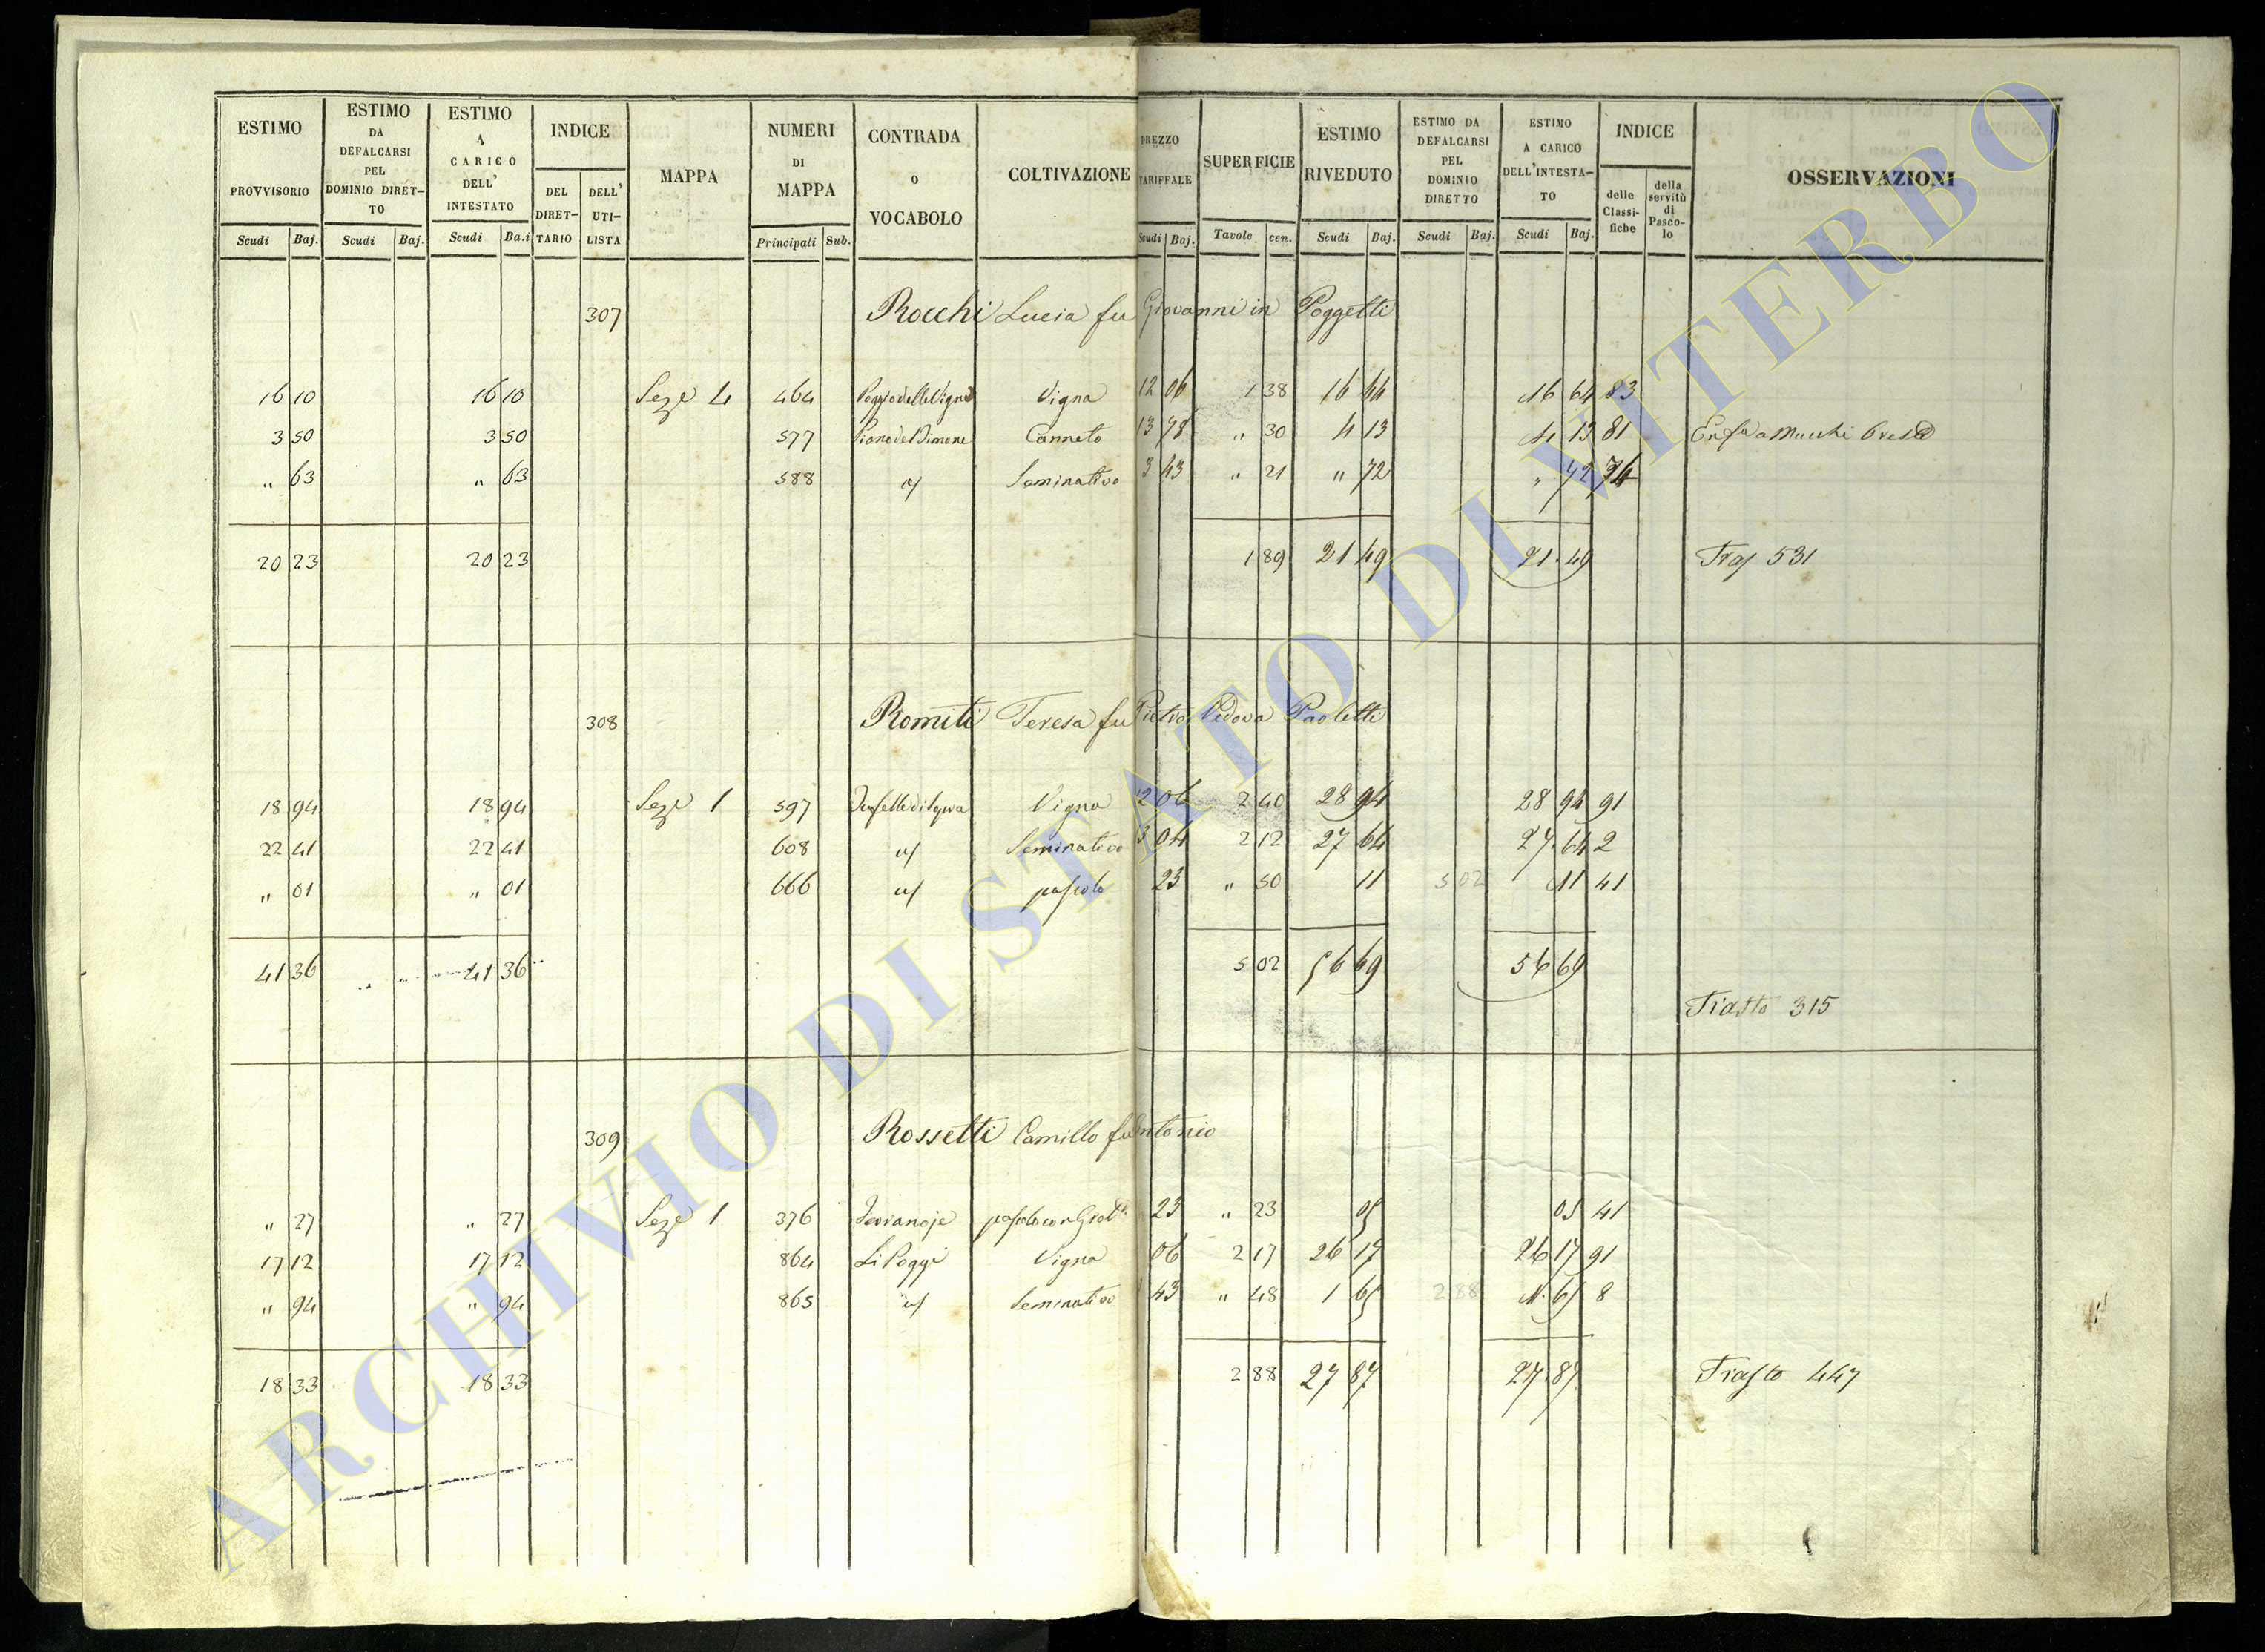 ESTIMO PROVVISORIO
ESTIMO DA DEFALCARSI PEL DOMINIO DIRET-TO
ESTIMO A CARICO DELL' INTESTATO
INDICE
DEL DIRET-TARIO
DELL' UTI-LISTA
MAPPA
NUMERI DI MAPPA
CONTRADA O VOCABOLO
COLTIVAZIONE
PREZZO TARIFFALE
SUPERFICIE
ESTIMO RIVEDUTO
ESTIMO DA DEFALCARSI PEL DOMINIO DIRETTO
ESTIMO A CARICO DELL'INTESTA-TO
INDICE
delle Classi-fiche
della servitù di Pasco-lo
OSSERVAZIONI
Scudi Baj. Scudi Baj. Scudi Ba.i Principali Sub. Scudi Baj. Tavole cen. Scudi Baj. Scudi Baj. Scudi Baj.
307 Rocchi Lucia fu Giovanni in Poggetti
16 10 16 10 Seze 4 464 Poggio delle Vigne Vigna 12 06 1 38 16 64 16 64 83
3 50 3 50 577 Canneto 13 78 " 30 4 13 4 13 81
" 63 " 63 588 Seminativo 3 43 " 21 " 72 " 72 74
20 23 20 23 1 89 21 49 21.49 531
308 Romiti Teresa fu Pietro Vedova Paoletti
18 94 18 94 Seze 1 597 Vigna 12 06 2 40 28 94 28 94 91
22 41 22 41 608 Seminativo 13 04 2 12 27 64 27.64 2
" 01 " 01 666 pascolo 23 " 50 11 5 02 11 41
41 36 41 36 5 02 56 69 56 69
Trasto 315
309 Rossetti Camillo fu Antonio
" 27 " 27 Seze 1 376 23 " 23 05 05 41
17 12 17 12 864 Li Poggi Vigna 06 2 17 26 17 26 17 91
" 94 " 94 865 Seminativo 43 " 48 1 65 2 88 1.65 8
18 33 18 33 2 88 27 87 27.87 Trasto 447
ARCHIVIO DI STATO DI VITERBO